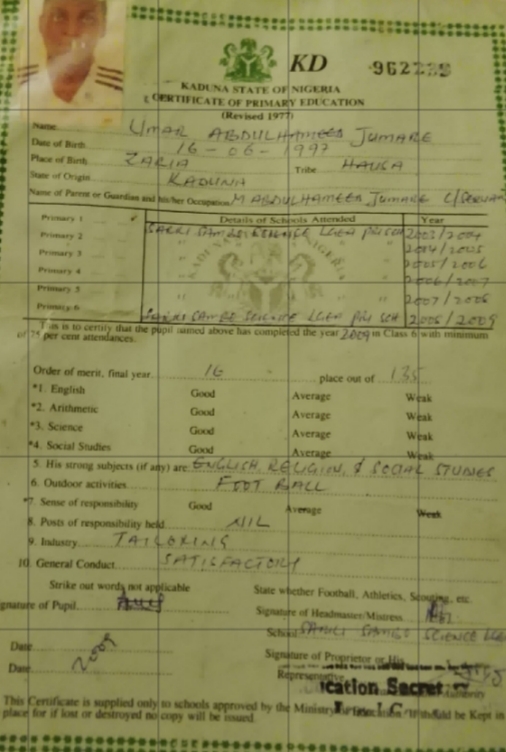 KD 962239
KADUNA STATE OF NIGERIA
CERTIFICATE OF PRIMARY EDUCATION
(Revised 1977)
Name UMAR ABDULHAMEED JUMARE
Date of Birth 16-06-1997
Place of Birth ZARIA Tribe HAUSA
State of Origin KADUNA
Name of Parent or Guardian and his/her Occupation M ABDULHAMEED JUMARE C/SERVANT
Details of Schools Attended Year
Primary 1 2003/2004
Primary 2 SCIENCE LGEA PRI SCH
Primary 3 2005/2006
Primary 4 2006/2007
Primary 5
Primary 6 SCIENCE LGEA PRI SCH
This is to certify that the pupil named above has completed the year 2009 in Class 6 with minimum
of 75 per cent attendances.
Order of merit, final year 16 place out of 135
*1. English Good Average Weak
*2. Arithmetic Good Average Weak
*3. Science Good Average Weak
*4. Social Studies Good Average Weak
5. His strong subjects (if any) are ENGLISH, RELIGION, & SOCIAL STUDIES
6. Outdoor activities FOOT BALL
*7. Sense of responsibility Good Average Weak
8. Posts of responsibility held NIL
9. Industry TAILORING
10. General Conduct SATISFACTORY
Strike out words not applicable State whether Football, Athletics, Scouting, etc.
Signature of Pupil Signature of Headmaster/Mistress
School SCIENCE LGEA
Date 2009 Signature of Proprietor or His
Date Representative
ication Secret
This Certificate is supplied only to schools approved by the Ministry of Education. It should be Kept in
place for if lost or destroyed no copy will be issued.